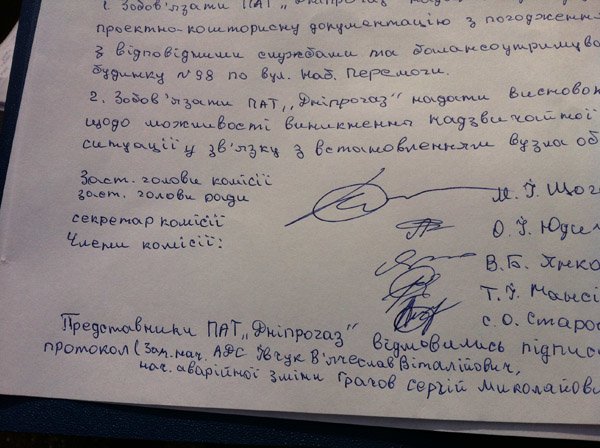 1. Зобов'язати ПАТ „Дніпрогаз"
проектно-кошторисну документацію з погодження
з відповідними службами та балансоутримув
будинку №98 по вул. Наб. Перемоги.
2. Зобов'язати ПАТ „Дніпрогаз" надати висново
щодо можливості виникнення надзвичайної
ситуації у зв'язку з встановленням вузла об
Заст. голови комісії
заст. голови ради
М. Ї. Щог
секретар комісії
О. Ї. Юди
Члени комісії:
В. Б. Янко
Т. Ї. Мансі
С. О. Старо
Представники ПАТ „Дніпрогаз" відмовились підпис
протокол (Зам. нач. АДС Ївчук В'ячеслав Віталійович,
нач. аварійної зміни Грачов Сергій Миколайови